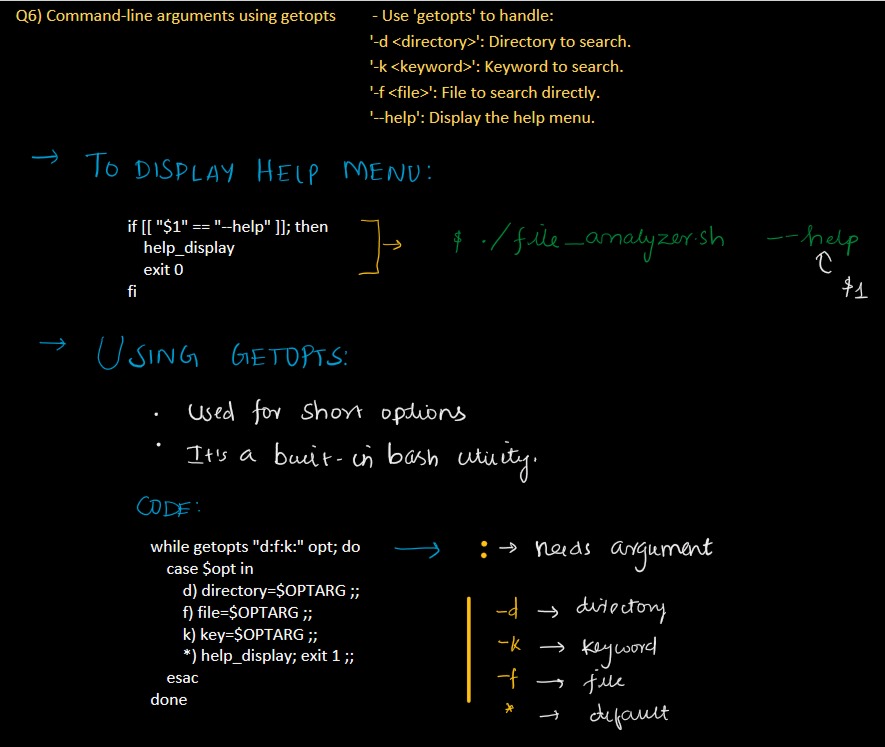 Q6) Command-line arguments using getopts - Use 'getopts' to handle:
'-d <directory>': Directory to search.
'-k <keyword>': Keyword to search.
'-f <file>': File to search directly.
'--help': Display the help menu.
→ TO DISPLAY HELP MENU:
if [[ "$1" == "--help" ]]; then
help_display
exit 0
fi
→ $ ./file_analyzer.sh --help
$1
→ USING GETOPTS:
· Used for short options
· It's a built-in bash utility.
CODE:
while getopts "d:f:k:" opt; do
case $opt in
d) directory=$OPTARG ;;
f) file=$OPTARG ;;
k) key=$OPTARG ;;
*) help_display; exit 1 ;;
esac
done
→ : → needs argument
-d → directory
-k → keyword
-f → file
* → default